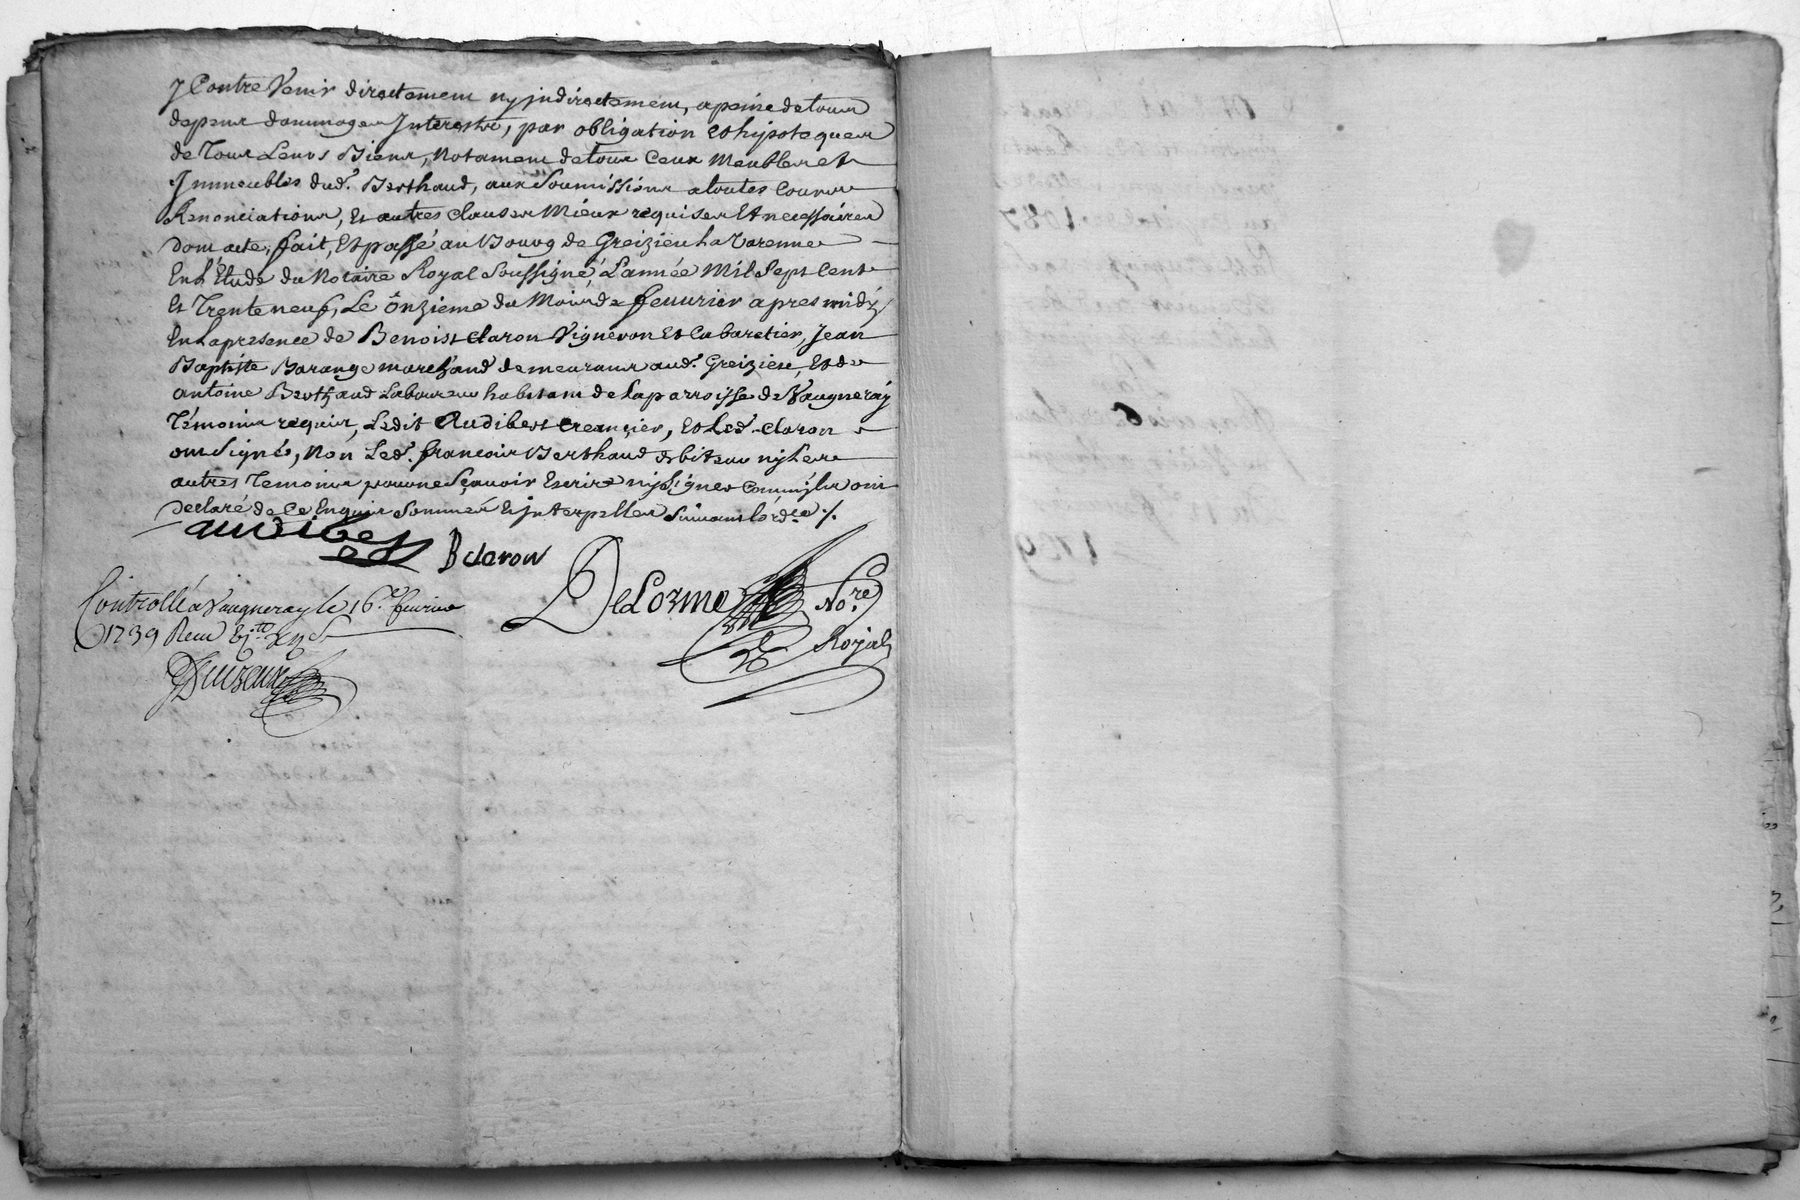 y Contre Venir directement ny jndirectement, apeine de tous
depens dommages Jnterests, par obligation et hypoteques
de Tous Leurs Biens, Notament de tous Ceux Meubles et
Jmmeubles dud. Berthaud, aux Soumissions a toutes Cours
Renonciations, Et autres clauses Mieux requises Et necessaires
Dont acte, fait, Et passé au Bourg de Greizieu La Varenne
En L'Etude du Notaire Royal Soussigné, L'année Mil Sept Cent
Et Trente neuf, Le Onzieme du Mois de feuurier apres midy
En La presence de Benoist Claron Vigneron Et Cabaretier, Jean
Baptiste Barange marchand demeurans aud. Greizieu, Et de
antoine Berthaud Laboureur habitant de La parroisse de Vaugneray
Témoins requis, Ledit Audibert Creancier, Et Led. Claron
ont Signé, Non Led. francois Berthaud debiteur ny Les
autres Temoins pour ne Sçauoir Escrire ny Signer Comm'jls ont
Declaré de Ce Enquis Sommés Et jnterpellés Suiuant lord.ce ./.
audibert
B claron
DeLorme No.re
Royal
Controllé a Vaugneray le 16.e feurier
1739 Receu
1087
6
1739